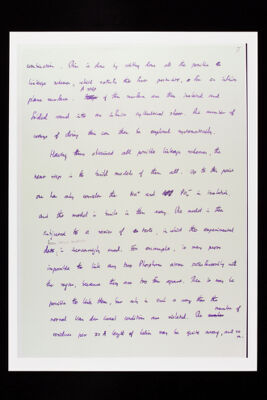 combination. This is done by writing down all the possible
linkage schemes, which satisfy the known , for an infinite
plane
A strip of this is then isolated and
folded round into an infinite cylindrical sheet, the number of
ways of doing this can then be explored systematically.
Having thus obtained all possible linkage schemes, the
next stage is to build models of them all. Up to this point
one has only considered the and in isolation,
and the model is built in this way. The model is then
subjected to a series of tests, in which the experimental
data, is increasingly used. For example, it may prove
impossible to link any two Phosphorus atoms
the sugar, because they are too far apart. Then it may be
possible to link them, but only in such a way that the
normal Van der Waals condition are violated. The number of
residues per Å length of helix may be quite wrong, and so
on.